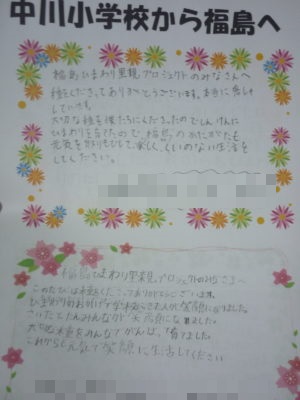 中川小学校から福島へ
福島ひまわり里親プロジェクトのみなさんへ
種をくださってありがとうございます。本当に感しゃ
しています。
大切な種を僕たちにくださったのでしんけんに
ひまわりを育てたので、福島のかたがたも
元気を取りもどして、楽しく、くいのない生活を
してください。
福島ひまわり里親プロジェクトのみなさまへ
このたびは種をくださってありがとうございます。
ひまわりのおかげで学校のみんなが笑顔になりました。
さいたとたんみんなが
大切な種をみんなでがんばって育てました。
これからも元気で笑顔に生活してください